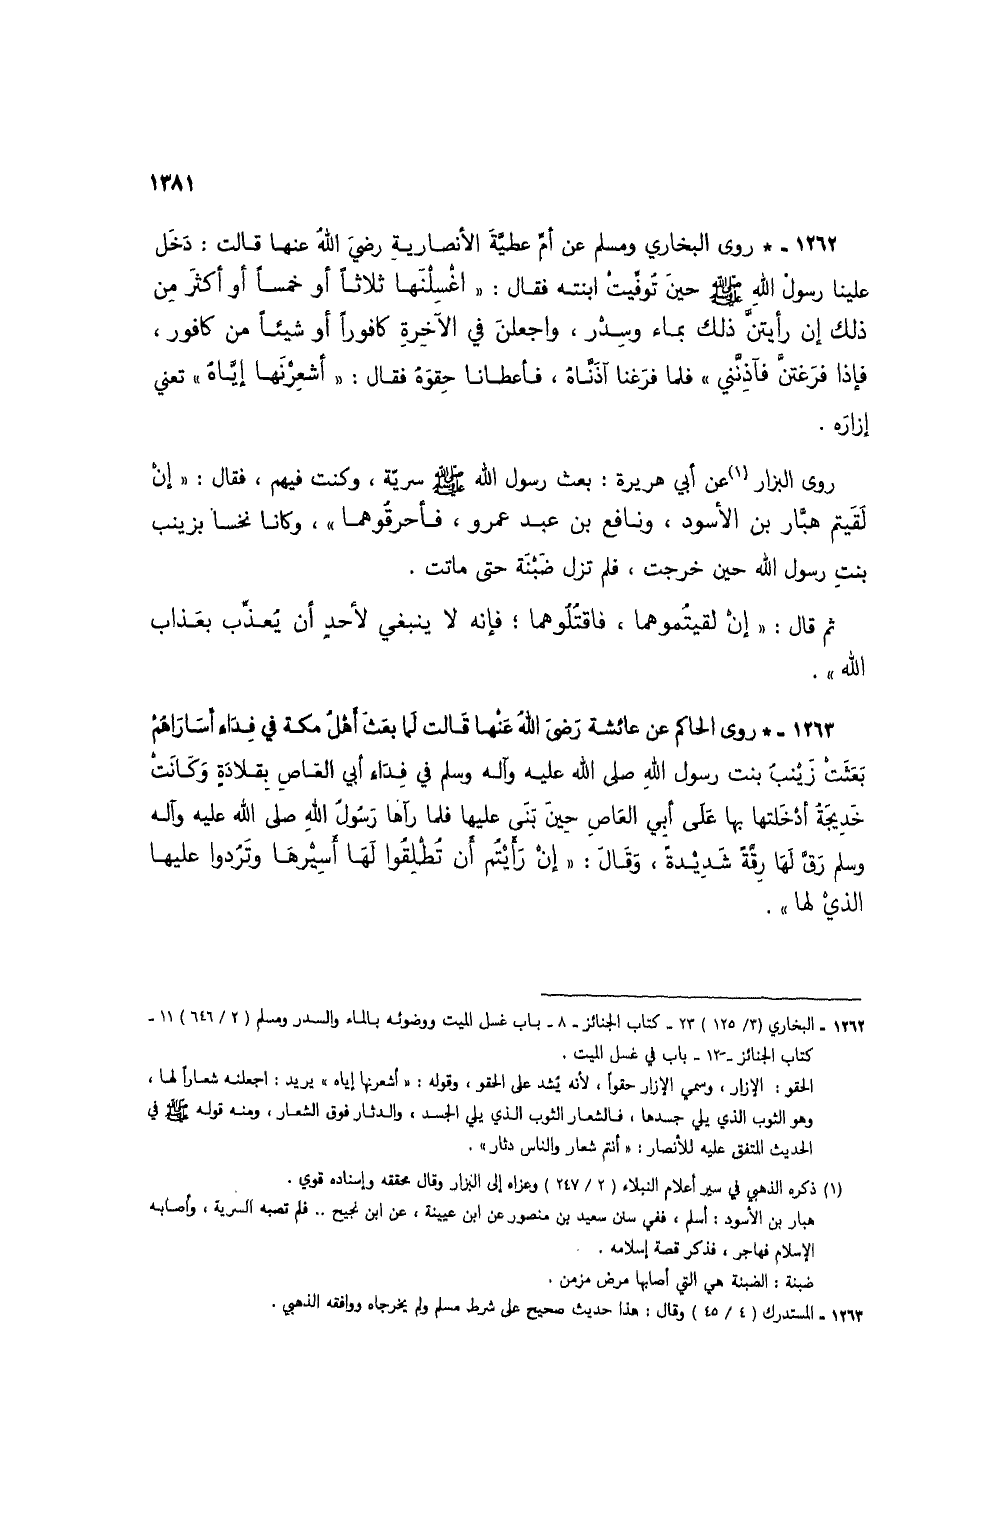 ١٣٨١
١٢٦٢ - * روى البخاري ومسلم عن أمِّ عطيَّةَ الأنصارية رضيَ اللهُ عنها قالت : دَخَل
علينا رسولُ اللهِ ﷺ حينَ تُوفِّيتْ ابنته فقال : « اغْسِلْنَها ثلاثاً أو خمساً أو أكثرَ مِن
ذلك إن رأيتنَّ ذلك بماء وسِدْر ، واجعلنَ في الآخِرةِ كافوراً أو شيئاً من كافور ،
فإذا فرَغتنَّ فآذِنَّني » فلما فرَغنا آذَنَّاهُ ، فأعطانا حِقوَهُ فقال : « أشعِرْنَها إيَّاهُ » تعني
إزارَه .
روى البزار (١) عن أبي هريرة : بعث رسول الله ﷺ سريّة ، وكنت فيهم ، فقال : « إنْ
لَقَيتم هبَّار بن الأسود ، ونافع بن عبد عمرو ، فأحرقُوهما » ، وكانا نخسا بزينب
بنتِ رسول الله حين خرجت ، فلم تزل ضَبْنَة حتى ماتت .
ثم قال : « إنْ لقيتُموهما ، فاقتُلُوهما ؛ فإنه لا ينبغي لأحدٍ أن يُعذّب بعَذاب
الله » .
١٢٦٣ - * روى الحاكم عن عائشة رَضيَ اللهُ عَنْها قَالت لَما بعَثَ أَهْلُ مكة في فِدَاء أَسَارَاهُمْ
بَعَثَتْ زَيْنبُ بنت رسول اللهِ صلى الله عليه وآله وسلم في فِدَاء أبي العَاصِ بِقِلادَةٍ وَكَانَتْ
خَدِيجَةُ أدْخَلتها بها عَلَى أبي العَاصِ حِينَ بَنَى عليها فلما رآهَا رَسُولُ اللهِ صلى الله عليه وآله
وسلم رَقَّ لَهَا رِقَّةً شَدِيْدةً ، وَقَالَ : « إنْ رَأَيْتُم أن تُطْلِقُوا لَهَا أَسِيْرهَا وتَرُدوا عليها
الذيْ لها » .
١٢٦٢ - البخاري (٣/ ١٢٥ ) ٢٣ - كتاب الجنائز - ٨ - باب غسل الميت ووضوئه بالماء والسدر ومسلم ( ٢ / ٦٤٦ ) ١١ -
كتاب الجنائز -١٢ - باب في غسل الميت .
الحقو : الإزار ، وسمي الإزار حقواً ، لأنه يُشد على الحقو ، وقوله : « أشعرنها إياه » يريد : اجعلنه شعاراً لها ،
وهو الثوب الذي يلي جسدها ، فالشعار الثوب الذي يلي الجسد ، والدثار فوق الشعار ، ومنه قوله ﷺ في
الحديث المتفق عليه للأنصار : « أنتم شعار والناس دثار » .
(١) ذكره الذهبي في سير أعلام النبلاء ( ٢ / ٢٤٧ ) وعزاه إلى البزار وقال محققه وإسناده قوي .
هبار بن الأسود : أسلم ، ففي سان سعيد بن منصور عن ابن عيينة ، عن ابن نجيح .. فلم تصبه السرية ، وأصابه
الإسلام فهاجر ، فذكر قصة إسلامه .
ضبنة : الضبنة هي التي أصابها مرض مزمن .
١٢٦٣ - المستدرك ( ٤ / ٤٥ ) وقال : هذا حديث صحيح على شرط مسلم ولم يخرجاه ووافقه الذهبي .